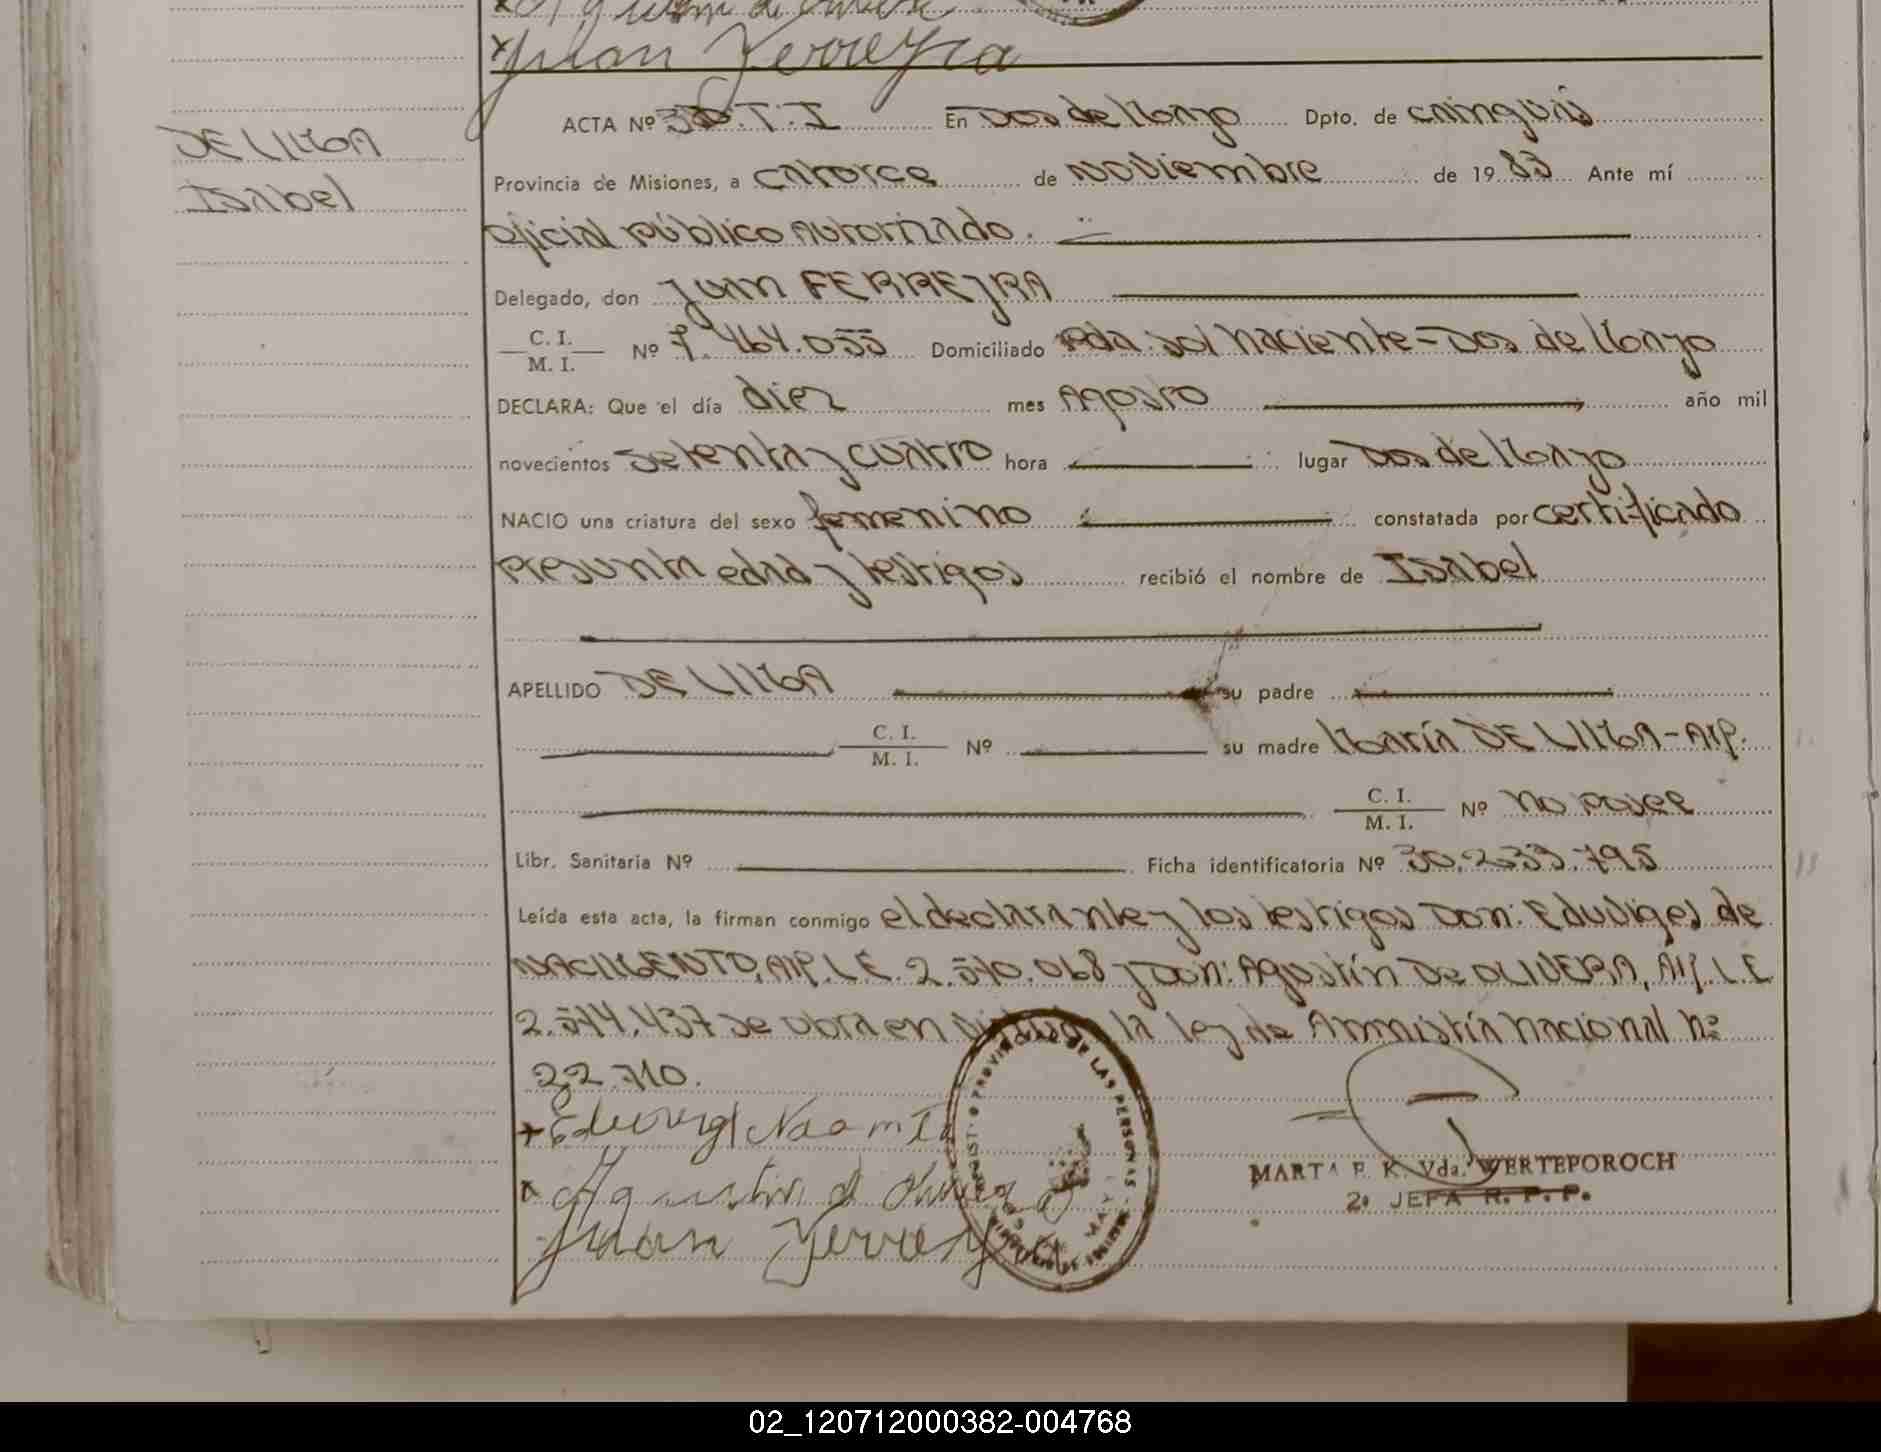 Agustin de
Juan Ferreyra
DE LIMA
Isabel
ACTA Nº T. I En Dos de Mayo Dpto. de Cainguás
Provincia de Misiones, a catorce de noviembre de 1983 Ante mí
oficial público Autorizado.
Delegado, don Juan FERREYRA
C. I.
M. I.
Nº 7.464.055 Domiciliado Pda. Sol Naciente - Dos de Mayo
DECLARA: Que el día diez mes Agosto año mil
novecientos setenta y cuatro hora lugar Dos de Mayo
NACIO una criatura del sexo femenino constatada por certificado
presunta edad y testigos recibió el nombre de Isabel
APELLIDO DE LIMA su padre
C. I.
M. I.
Nº su madre María DE LIMA - Arg.
C. I.
M. I.
Nº no posee
Libr. Sanitaria Nº Ficha identificatoria Nº 30.239.795
Leída esta acta, la firman conmigo el declarante y los testigos Don: Eduviges de
NACIMENTO, Arg. L.E. 2.540.068 y Don: Agustín De OLIVERA, Arg. L.E
2.544.437 se obra en la ley de Amnistía Nacional Nº
22.710.
Agustin d
Juan Ferrey
MARTA E. K. Vda. WERTEPOROCH
2ª JEFA R. P. P.
PROVINCIAL DE LAS PERSONAS
02_120712000382-004768